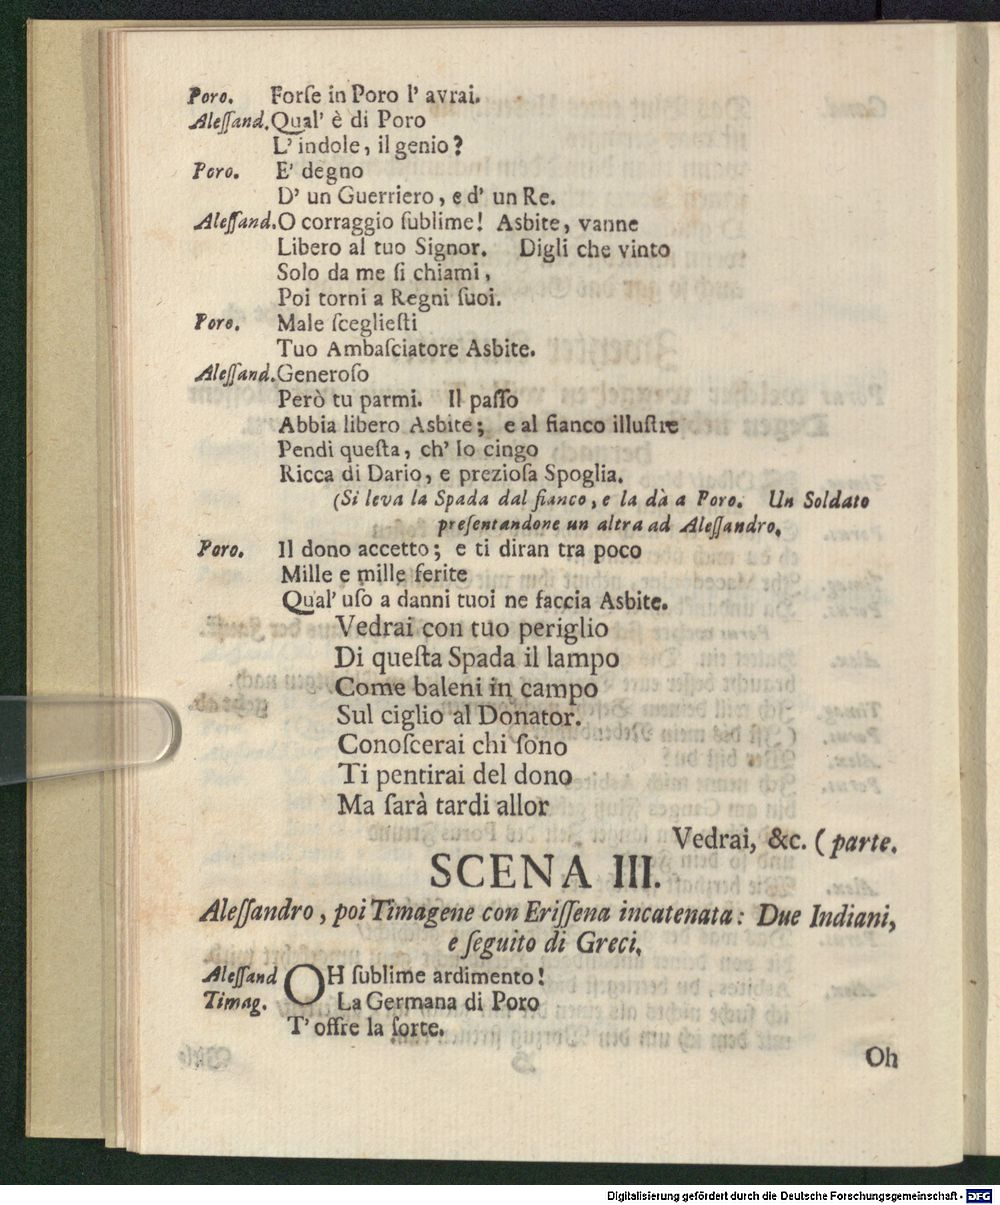 Poro. Forſe in Poro l' avrai.
Aleſſand. Qual' è di Poro
L' indole, il genio?
Poro. E' degno
D' un Guerriero, e d' un Re.
Aleſſand. O corraggio ſublime! Asbite, vanne
Libero al tuo Signor. Digli che vinto
Solo da me ſi chiami,
Poi torni a Regni ſuoi.
Poro. Male ſceglieſti
Tuo Ambaſciatore Asbite.
Aleſſand. Generoſo
Però tu parmi. Il paſſo
Abbia libero Asbite; e al fianco illuſtre
Pendi queſta, ch' Io cingo
Ricca di Dario, e prezioſa Spoglia.
(Si leva la Spada dal fianco, e la dà a Poro. Un Soldato
preſentandone un altra ad Aleſſandro,
Poro. Il dono accetto; e ti diran tra poco
Mille e mille ferite
Qual' uſo a danni tuoi ne faccia Asbite.
Vedrai con tuo periglio
Di queſta Spada il lampo
Come baleni in campo
Sul ciglio al Donator.
Conoſcerai chi ſono
Ti pentirai del dono
Ma ſarà tardi allor
Vedrai, &c. (parte.
SCENA III.
Aleſſandro, poi Timagene con Eriſſena incatenata: Due Indiani,
e ſeguito di Greci.
Aleſſand OH ſublime ardimento!
Timag. La Germana di Poro
T' offre la ſorte.
Oh
Digitalisierung gefördert durch die Deutsche Forschungsgemeinschaft - DFG